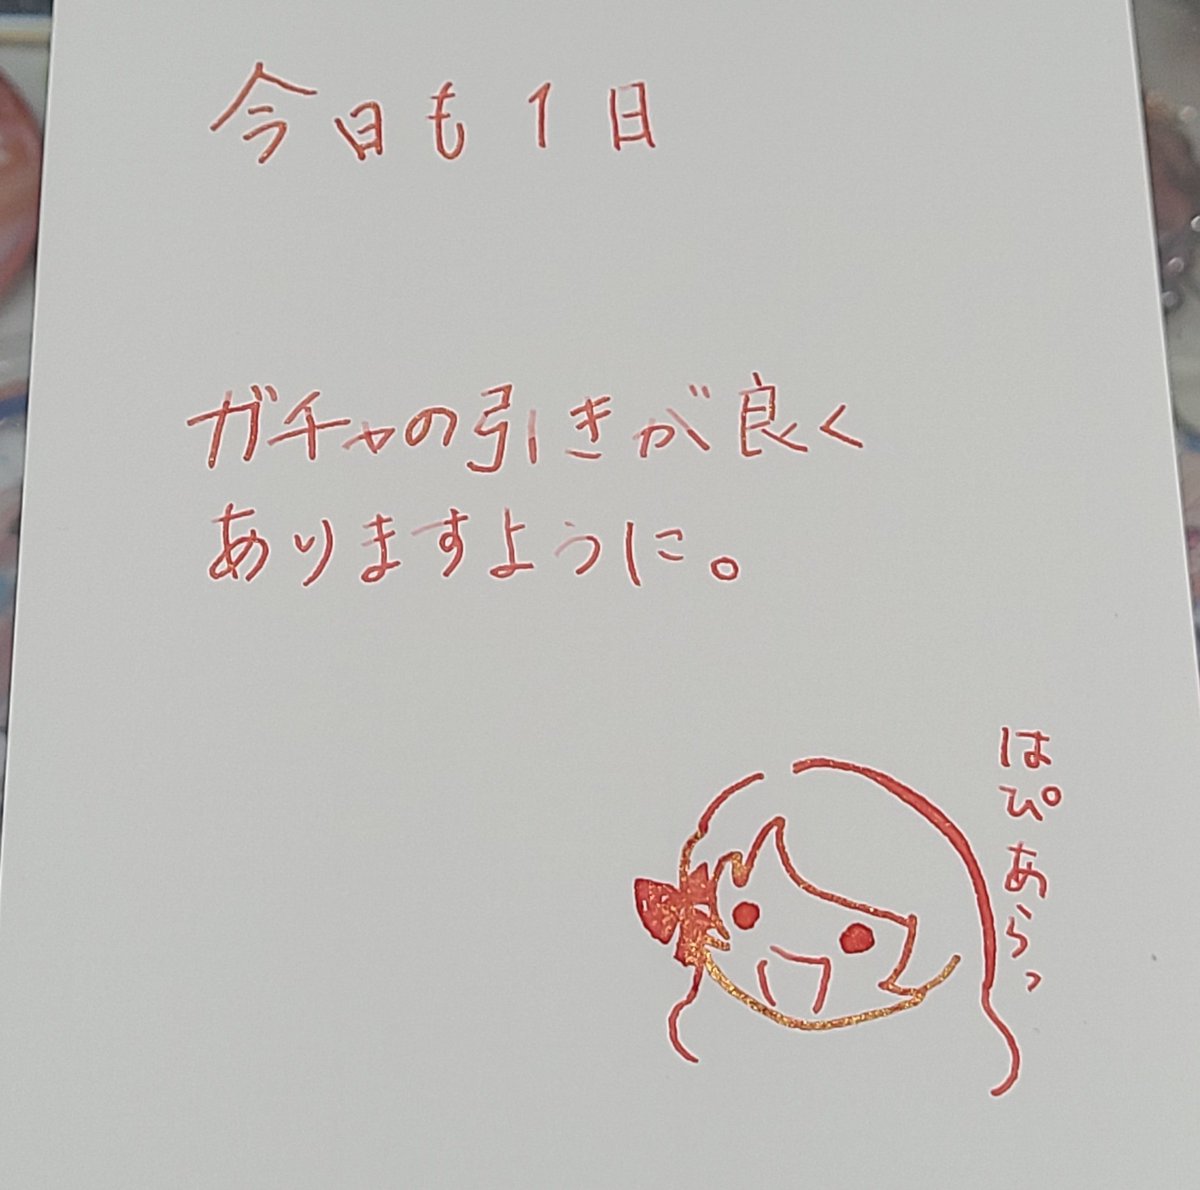 今日も1日
ガチャの引きが良く
ありますように。
はぴあらっ